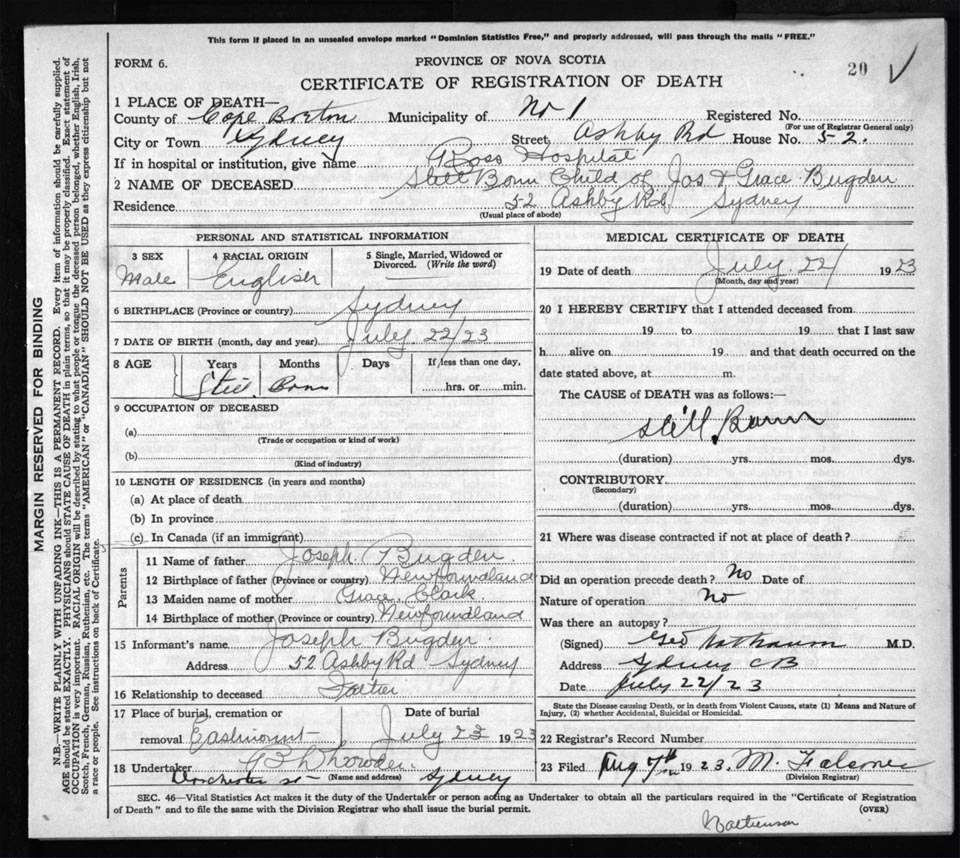 This form if placed in an unsealed envelope marked "Dominion Statistics Free," and properly addressed, will pass through the mails "FREE."
FORM 6. PROVINCE OF NOVA SCOTIA 20 ✓
CERTIFICATE OF REGISTRATION OF DEATH
1 PLACE OF DEATH—
County of Cape Breton Municipality of No 1 Registered No.
(For use of Registrar General only)
City or Town Sydney Street Ashby Rd House No. 52.
If in hospital or institution, give name Ross Hospital
2 NAME OF DECEASED Still Born Child of Jas & Grace Bugden
Residence 52 Ashby Rd Sydney
(Usual place of abode)
PERSONAL AND STATISTICAL INFORMATION
3 SEX 4 RACIAL ORIGIN 5 Single, Married, Widowed or Divorced. (Write the word)
Male English
6 BIRTHPLACE (Province or country) Sydney
7 DATE OF BIRTH (month, day and year) July 22/23
8 AGE Years Months Days If less than one day,
Still Born hrs. or min.
9 OCCUPATION OF DECEASED
(a)
(Trade or occupation or kind of work)
(b)
(Kind of industry)
10 LENGTH OF RESIDENCE (in years and months)
(a) At place of death
(b) In province
(c) In Canada (if an immigrant)
Parents
11 Name of father Joseph Bugden
12 Birthplace of father (Province or country) Newfoundland
13 Maiden name of mother Grace Clark.
14 Birthplace of mother (Province or country) Newfoundland
15 Informant's name Joseph Bugden.
Address 52 Ashby Rd Sydney
16 Relationship to deceased Father
17 Place of burial, cremation or Date of burial
removal Eastmount July 23 1923
18 Undertaker
Dorchester St (Name and address) Sydney
MEDICAL CERTIFICATE OF DEATH
19 Date of death July 22/ 1923
(Month, day and year)
20 I HEREBY CERTIFY that I attended deceased from
19 to 19 that I last saw
h alive on 19 and that death occurred on the
date stated above, at m.
The CAUSE of DEATH was as follows:—
Still Born
(duration) yrs. mos. dys.
CONTRIBUTORY
(Secondary)
(duration) yrs. mos. dys.
21 Where was disease contracted if not at place of death?
Did an operation precede death? No Date of
Nature of operation No
Was there an autopsy?
(Signed) Geo M.D.
Address Sydney CB
Date July 22/23
State the Disease causing Death, or in death from Violent Causes, state (1) Means and Nature of
Injury, (2) whether Accidental, Suicidal or Homicidal.
22 Registrar's Record Number
23 Filed Aug 7th 1923. M.
(Division Registrar)
SEC. 46—Vital Statistics Act makes it the duty of the Undertaker or person acting as Undertaker to obtain all the particulars required in the "Certificate of Registration
of Death" and to file the same with the Division Registrar who shall issue the burial permit. (OVER)
MARGIN RESERVED FOR BINDING
N.B.—WRITE PLAINLY WITH UNFADING INK—THIS IS A PERMANENT RECORD. Every item of information should be carefully supplied.
AGE should be stated EXACTLY. PHYSICIANS should STATE CAUSE OF DEATH in plain terms, so that it may be properly classified. Exact statement of
OCCUPATION is very important. RACIAL ORIGIN will be described by stating to what people or tongue the deceased person belonged, whether English, Irish,
Scotch, French, German, Russian, Ruthenian, etc. The terms "AMERICAN" or "CANADIAN" SHOULD NOT BE USED as they express citizenship but not
a race or people. See instructions on back of Certificate.